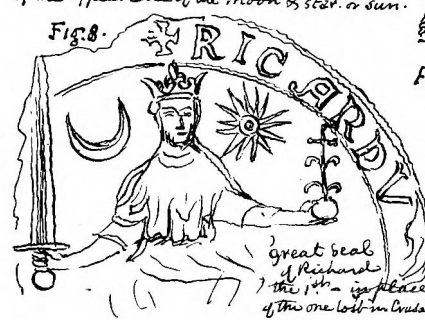 of the Moon & star. or sun.
Fig. 8.
✠ RICARDV
great seal
of Richard
the 1st. - in place
of the one lost in Crusa